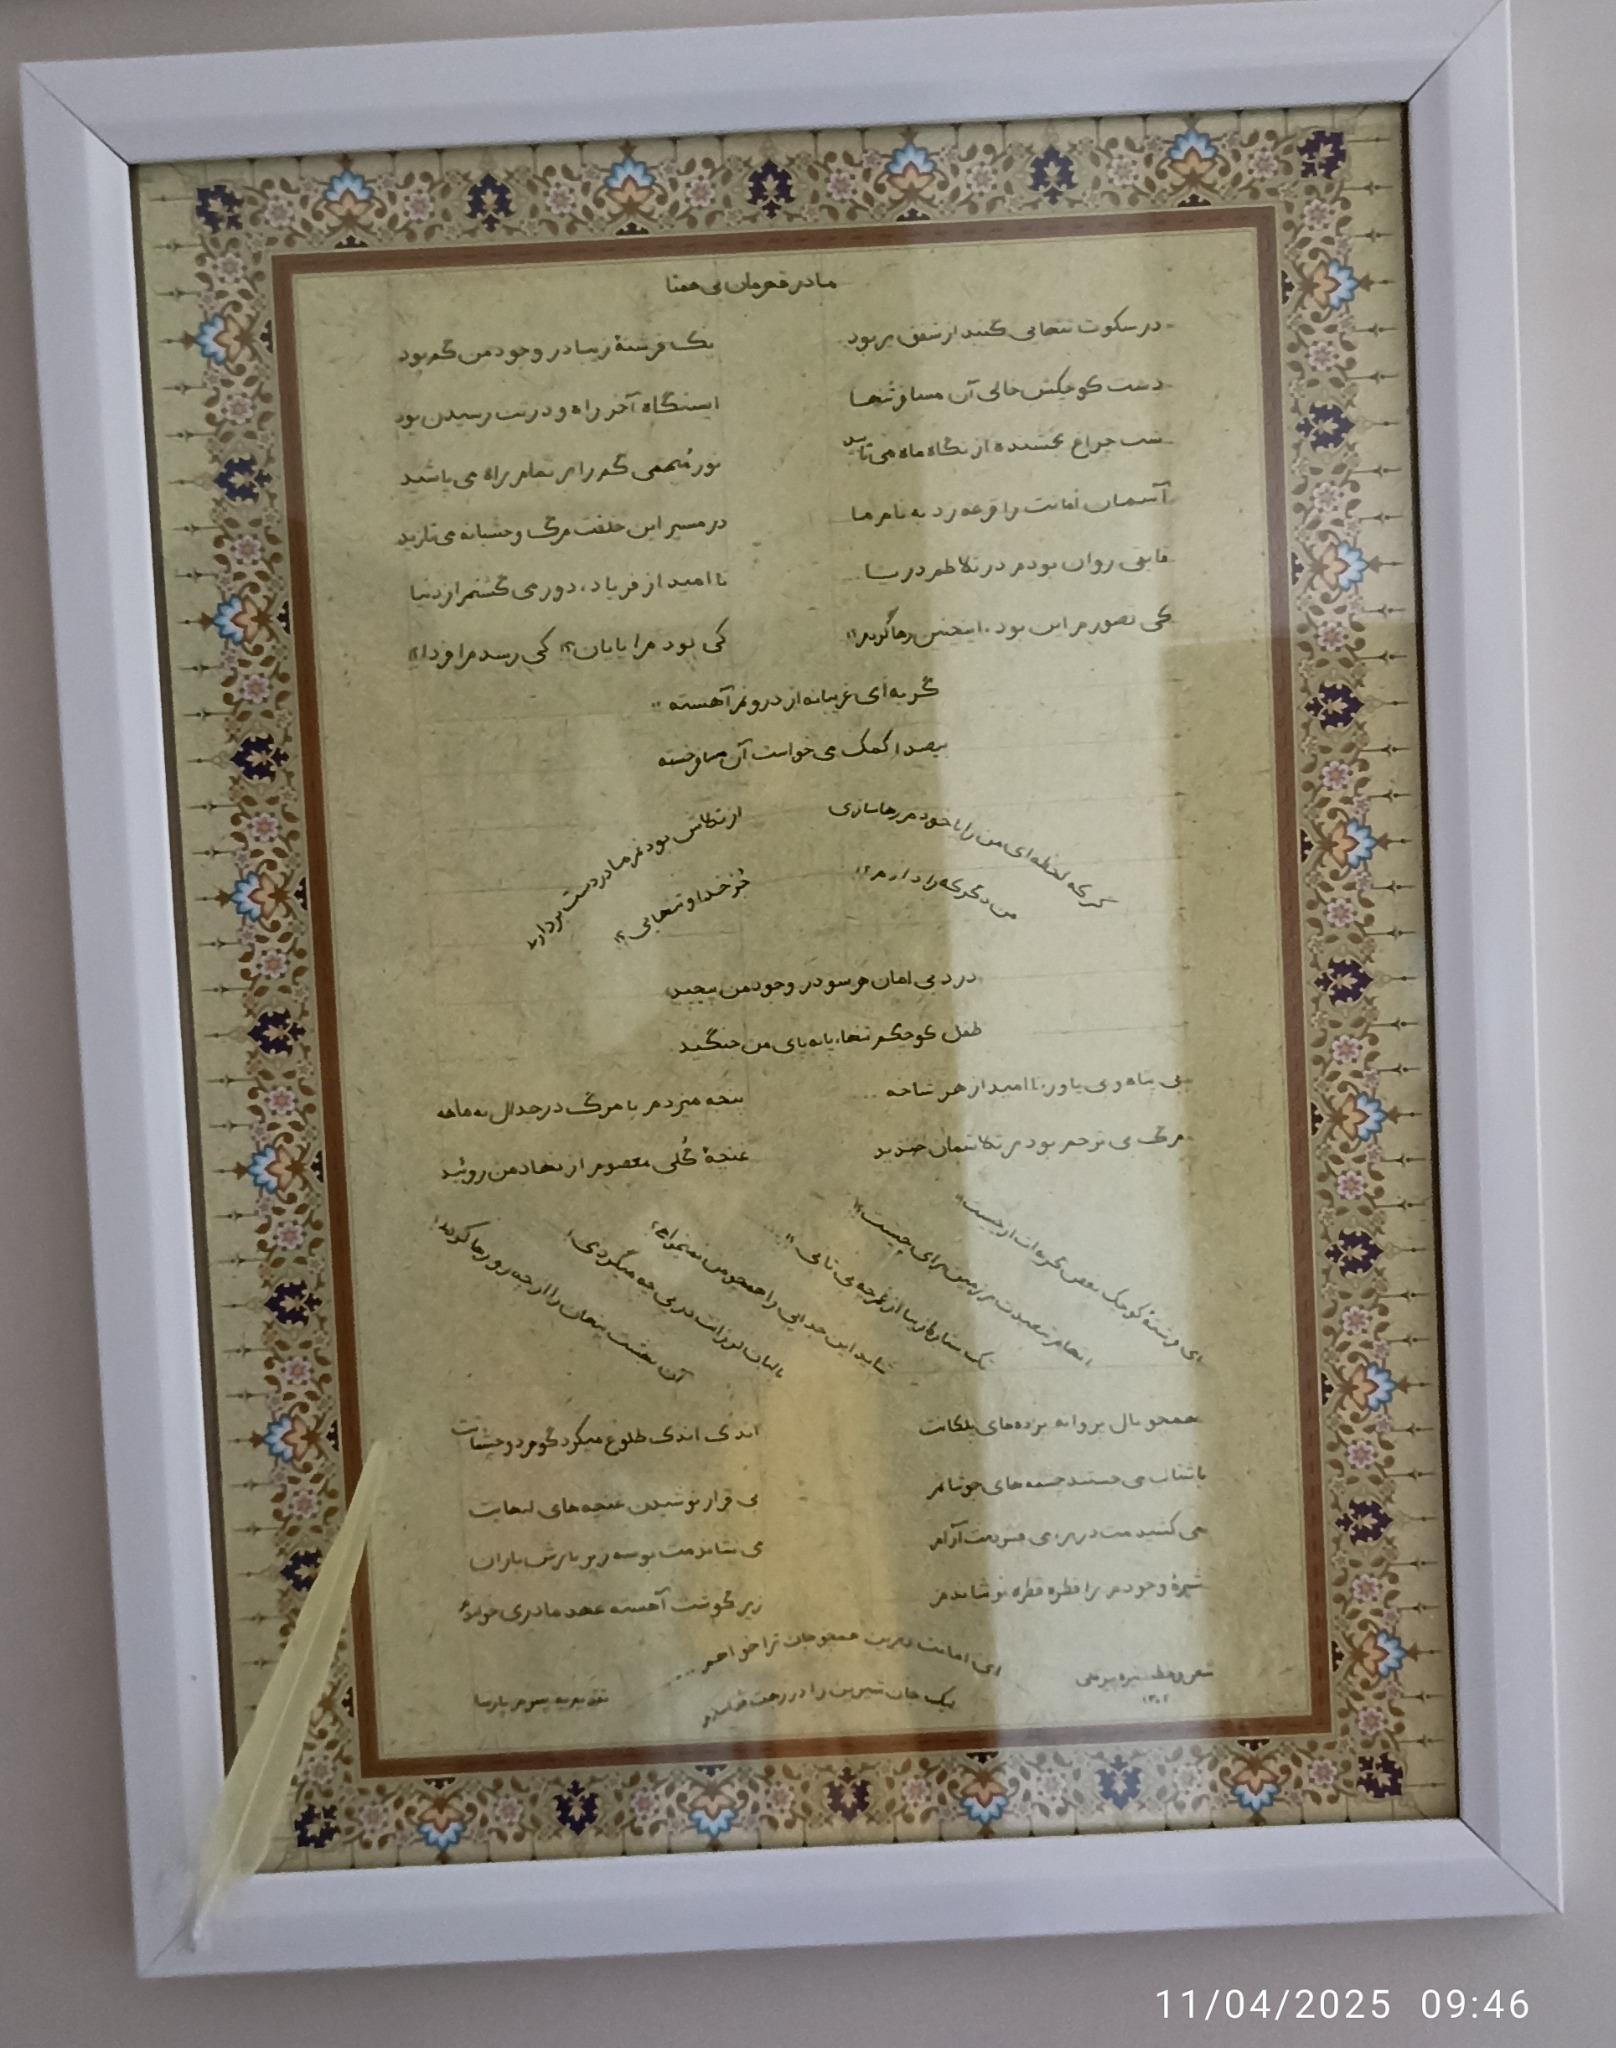 مادر قهرمان بی همتا
در سکوت تنهایی گنبد از شفق پر بود
یک فرشتهٔ زیبا در وجود من گم بود
دست کوچکش خالی آن مسافر تنها
ایستگاه آخر راه و در تب رسیدن بود
شب چراغ بخشنده از نگاه ماه می تابید
نور مبهمی گم را بر تمام راه می پاشید
آسمان امانت را قرعه زد به نام ما
در مسیر این خلقت مرگ وحشیانه می تازید
قایقی روان بودم در تلاطم دریا ...
ناامید از فریاد، دور می گشتم از دنیا
کی تصورم این بود، اینچنین رها گردم؟!
کی بود مرا پایان؟! کی رسد مرا فردا؟!
گریه ای غریبانه از درونم آهسته ..
بیصدا کمک می خواست آن مسافر خسته
گر که لحظه ای من را با خودم رها سازی
از تلاش بودنم مادر دست برداری
من دگر که را دارم؟!
جز خدا و تنهایی؟!
درد بی امان هر سو در وجود من پیچید
طفل کوچکم تنها، پا به پای من جنگید
بی پناه و بی یاور، ناامید از هر شاخه ..
پنجه میزدم با مرگ در جدال نه ماهه
مرگ بی ترحم بود بر تلاشمان خندید
غنچهٔ گلی معصوم از نهاد من روئید
ای فرشتهٔ کوچک بغض گریه ات از چیست؟!
اتهام تبعیدت بر زمین برای چیست؟!
تک ستارهٔ زیبا از غم چه بی تابی؟! ...
شاید این جدایی را همچو من نمیخواهی؟
با لبان لرزانت در پی چه میگردی؟
آن بهشت پنهان را از چه رو رها کردی؟
همچو بال پروانه پرده های پلکانت
اندک اندک طلوع میکرد گوهر دو چشمانت
با شتاب می جستند چشمه های جوشانم
بی قرار نوشیدن غنچه های لبهایت
می کشیدمت در بر، می فشردمت آرام
می نشاندمت بوسه زیر بارش باران
شیرهٔ وجودم را قطره قطره نوشاندم
زیر گوشت آهسته عهد مادری خواندم
ای امانت دیرین همچو جان ترا خواهم ...
یک جان شیرین را در رهت فشاندم
شعر و خط:
تقدیم به پسرم پارسا